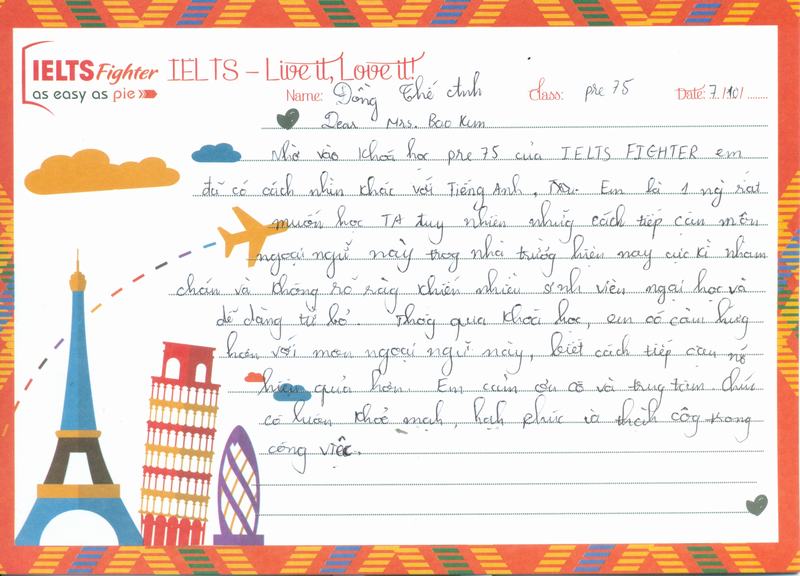 IELTS Fighter IELTS – Live it, Love it!
as easy as pie
Name: Đồng Thế Anh Class: pre 75 Date: 7/10/......
Dear Mrs. Bao Kim
Nhờ vào khoá học pre 75 của IELTS FIGHTER em
đã có cách nhìn khác với Tiếng Anh, Em là 1 ng rất
muốn học TA tuy nhiên những cách tiếp cận môn
ngoại ngữ này trog nhà trường hiện nay cực kì nhàm
chán và không rõ ràg khiến nhiều sinh viên ngại học và
dễ dàng từ bỏ. Thôg qua khoá học, em có cảm hứng
hơn với môn ngoại ngữ này, biết cách tiếp cận nó
hiệu quả hơn. Em cảm ơn cô và trug tâm. Chúc
cô luôn khoẻ mạnh, hạh phúc và thàh côg trong
công việc.